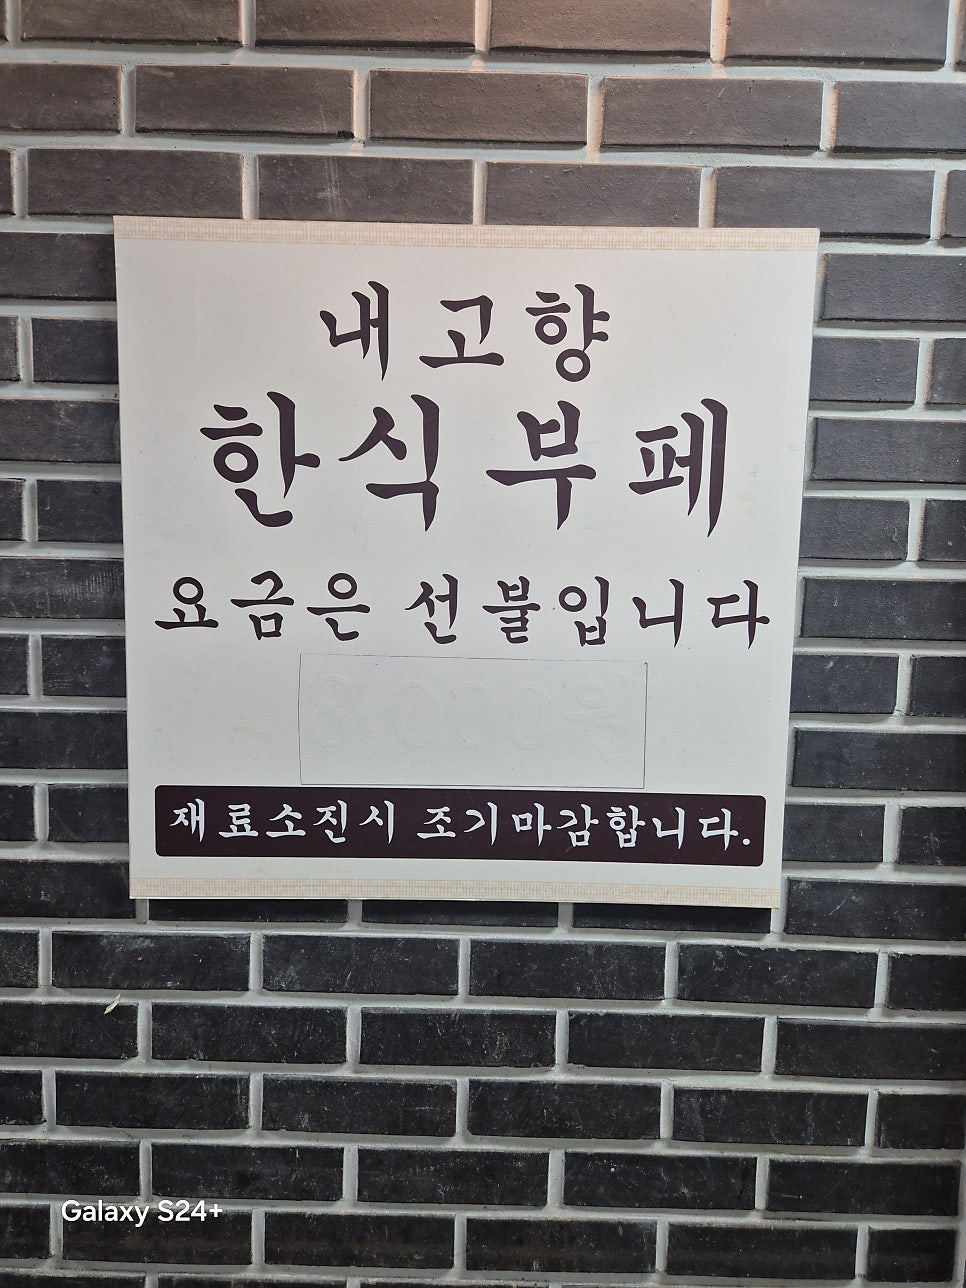 내고향
한식부페
요금은 선불입니다
8,000원
재료소진시 조기마감합니다.
Galaxy S24+